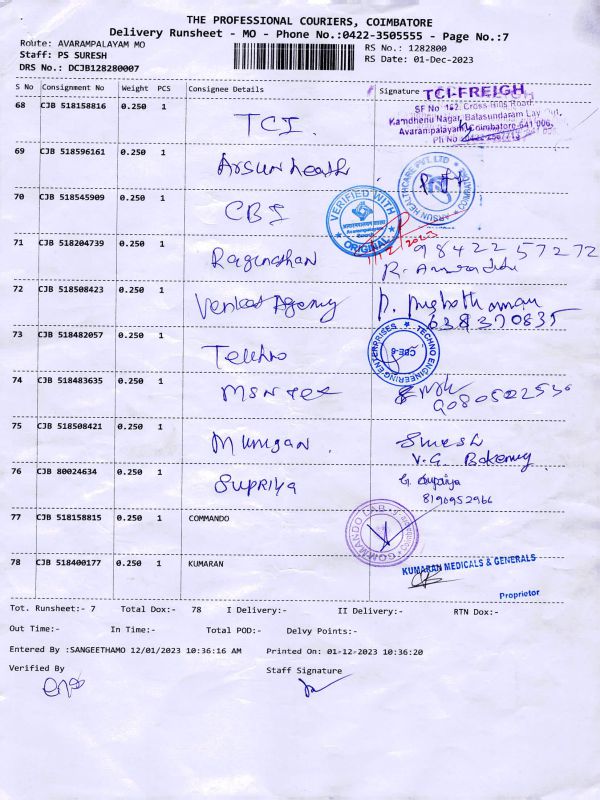 THE PROFESSIONAL COURIERS, COIMBATORE
Delivery Runsheet - MO - Phone No.:0422-3505555 - Page No.:7
Route: AVARAMPALAYAM MO
RS No.: 1282800
Staff: PS SURESH
RS Date: 01-Dec-2023
DRS No.: DCJB128280007
S No Consignment No Weight PCS Consignee Details Signature
TCI-FREIGH
SF No 152, Cross Hills Road
Kamdhenu Nagar, Balasundaram Lay Out,
Avarampalayam, Coimbatore-641 006.
68 CJB 518158816 0.250 1 TCI.
69 CJB 518596161 0.250 1 Arsun heath
ARSUN HEALTHCARE PVT. LTD
70 CJB 518545909 0.250 1 CBI
VERIFIED WITH ORIGINAL
71 CJB 518204739 0.250 1 Ragunathan 98422 57272
72 CJB 518508423 0.250 1 Venkat Agency
73 CJB 518482057 0.250 1 Techno
TECHNO ENGINEERING ENTERPRISES
CBE-6
74 CJB 518483635 0.250 1 MSN Tex
75 CJB 518508421 0.250 1 Murugan. Suresh
V.G. Bakery
76 CJB 80024634 0.250 1 Supriya G. Supriya
8190952966
77 CJB 518158815 0.250 1 COMMANDO
78 CJB 518400177 0.250 1 KUMARAN
KUMARAN MEDICALS & GENERALS
Proprietor
Tot. Runsheet:- 7 Total Dox:- 78 I Delivery:- II Delivery:- RTN Dox:-
Out Time:- In Time:- Total POD:- Delvy Points:-
Entered By :SANGEETHAMO 12/01/2023 10:36:16 AM Printed On: 01-12-2023 10:36:20
Verified By Staff Signature